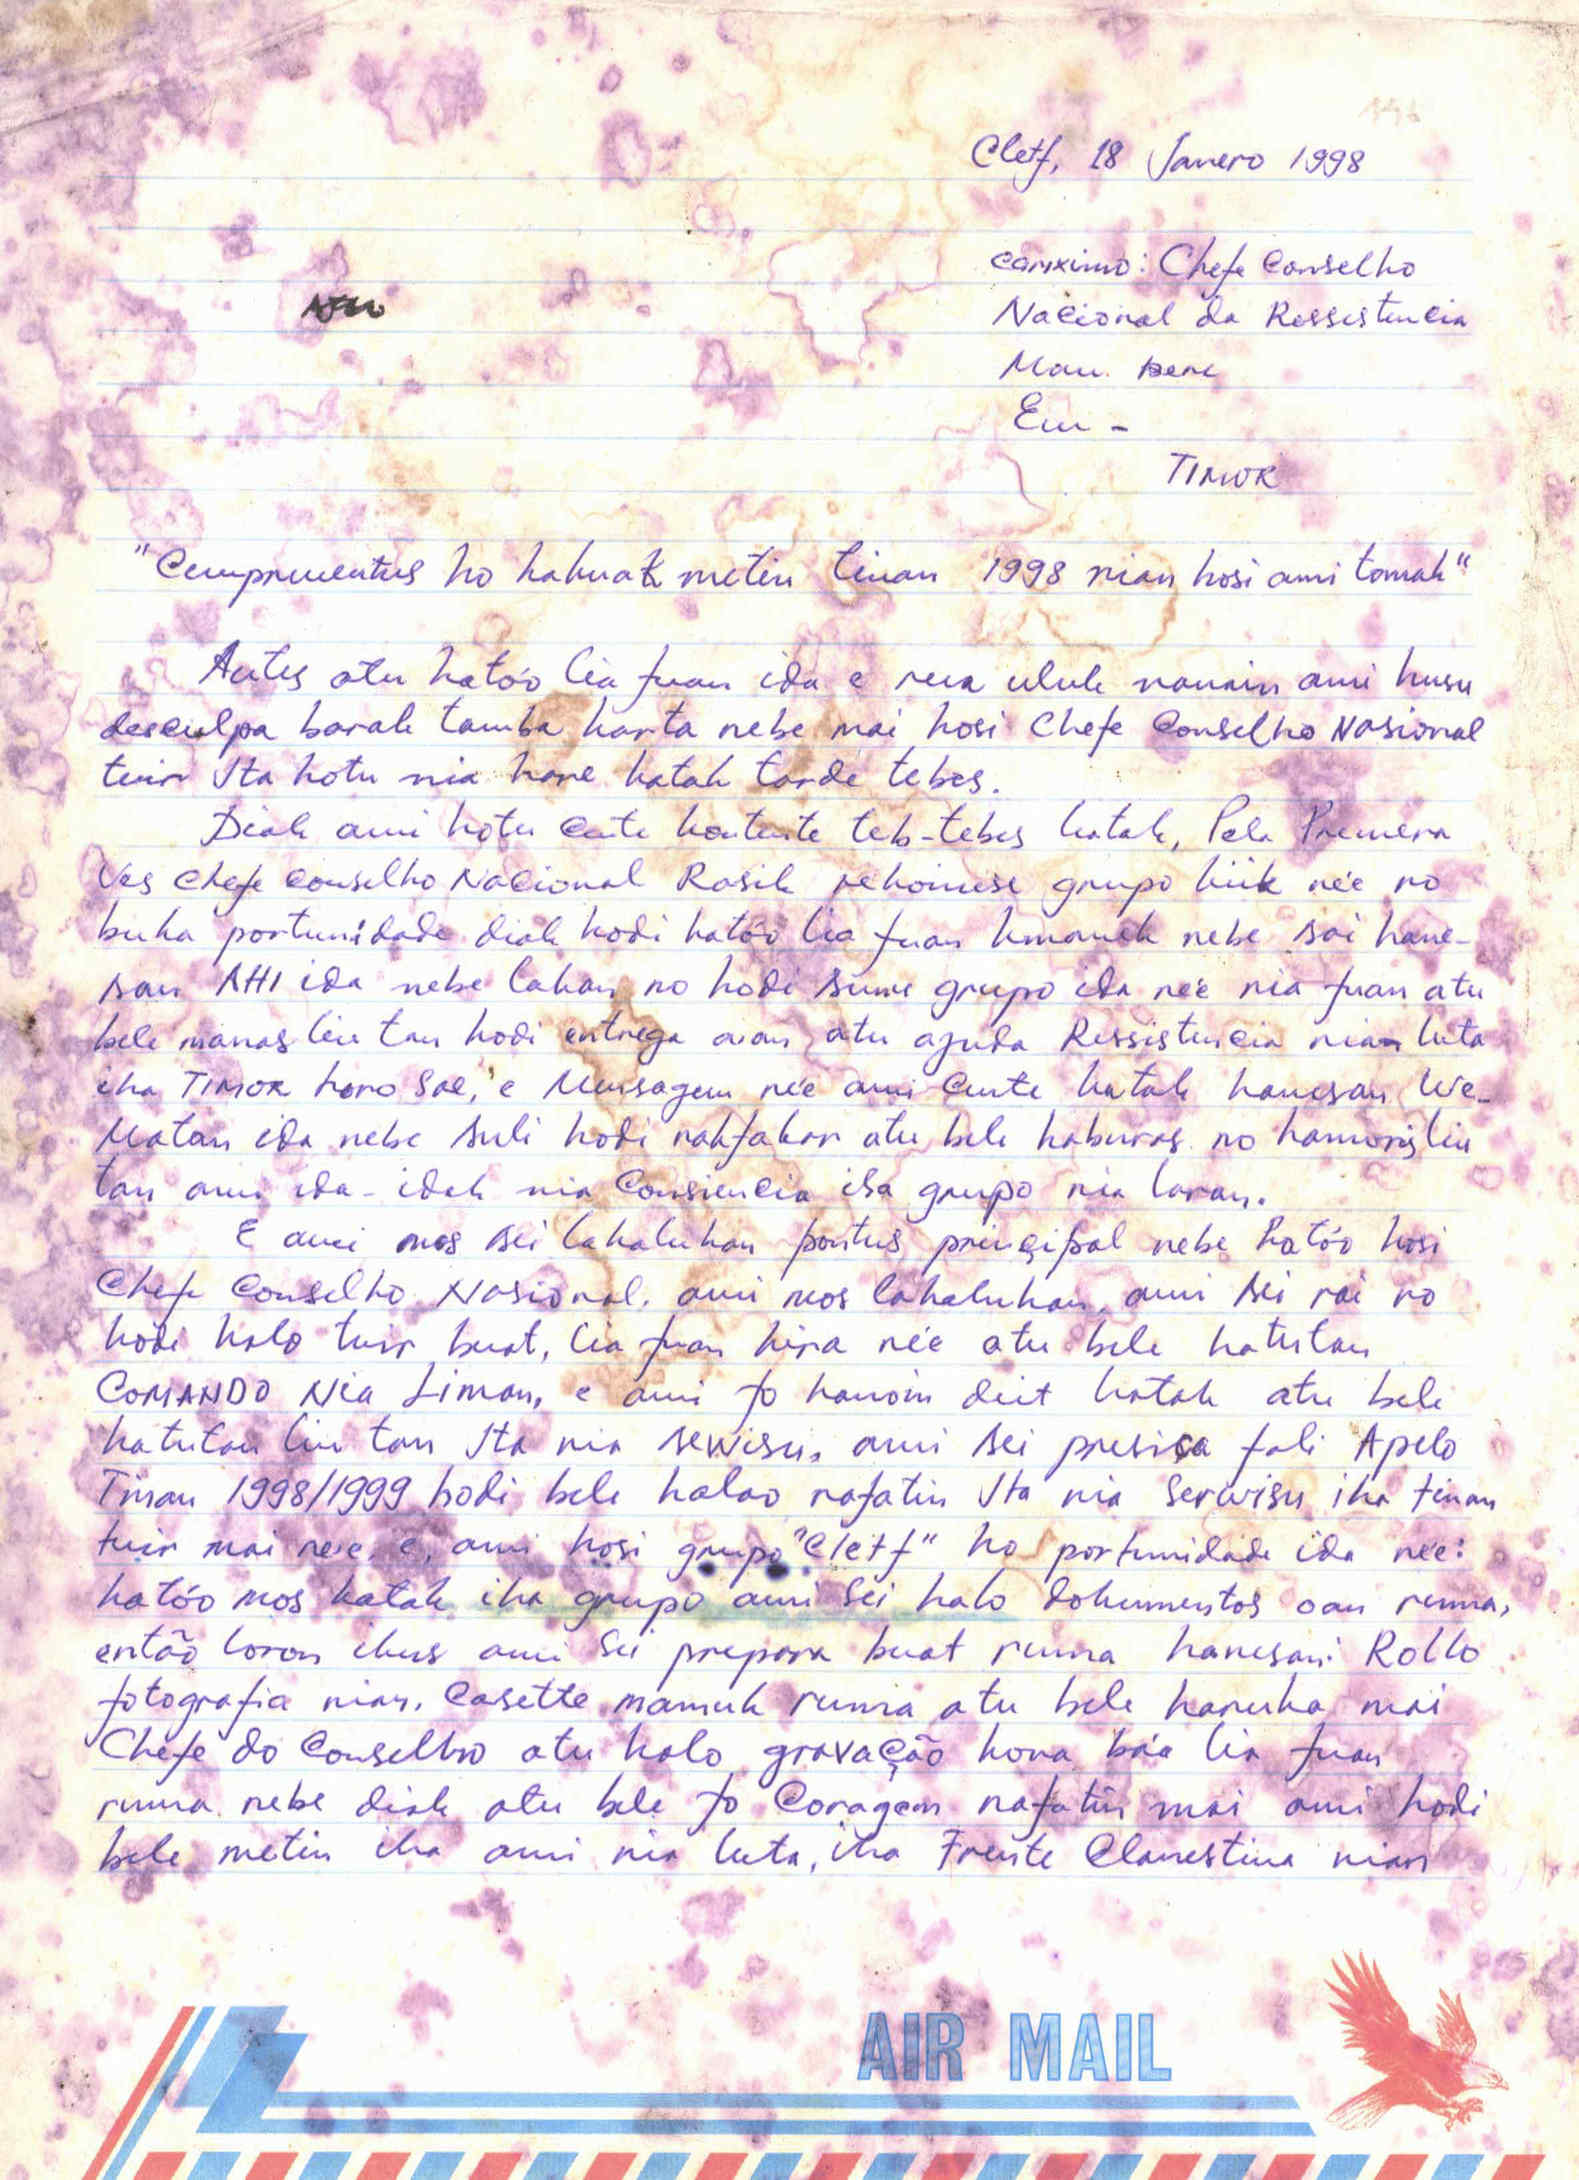 Cletf, 18 Janero 1998
Camximo: Chefe Conselho
Nacional da Ressistencia
Mau bere
Em -
TIMOR
"Cumprimentus ho hakuak metin tinan 1998 nian hosi ami tomak"
Antes atu ható'o lia fuan ida e rua uluk nanain ami husu
desculpa barak tamba karta nebe mai hosi Chefe Conselho Nasional
tuir Ita hotu nia hare katak tarde tebes.
Diak ami hotu cente kontente teb-tebes katak, Pela Premera
Ves Chefe Conselho Nacional Rasik rekoinese grupo kiik ne'e no
buka portunidade diak hodi ható'o lia fuan kmanek nebe sai hane-
san AHI ida nebe lakan no hodi sunu grupo ida ne'e nia fuan atu
bele manas liu tan hodi entrega aan atu ajuda Ressistencia nian luta
iha TIMOR loro Sae, e Mensagem ne'e ami cente katak hanesan We-
Matan ida nebe suli hodi nakfakar atu bele haburas no hamoris liu
tan ami ida-idak nia Consiencia iha grupo nia laran.
E ami mos sei lahaluhan pontus principal nebe ható'o hosi
Chefe Conselho Nasional. ami mos lahaluhan, ami sei rai no
hodi halo tuir buat, lia fuan hira ne'e atu bele hatutan
COMANDO Nia Liman, e ami fo hanoin deit katak atu bele
hatutan liu tan Ita nia sewisu, ami sei presisa fali Apelo
Tinan 1998/1999 hodi bele halao nafatin Ita nia Serwisu iha tinan
tuir mai ne'e, e, ami hosi grupo "Cletf" ho portunidade ida ne'e:
ható'o mos katak iha grupo ami sei halo dokumentos oan ruma,
então loron ikus ami sei prepara buat ruma hanesan: Rollo
fotografia nian, Casette mamuk ruma atu bele haruka mai
Chefe do Conselho atu halo gravação hona ba'a lia fuan
ruma nebe diak atu bele fo Coragem nafatin mai ami hodi
bele metin iha ami nia luta, iha Frente Clanestina nian
AIR MAIL